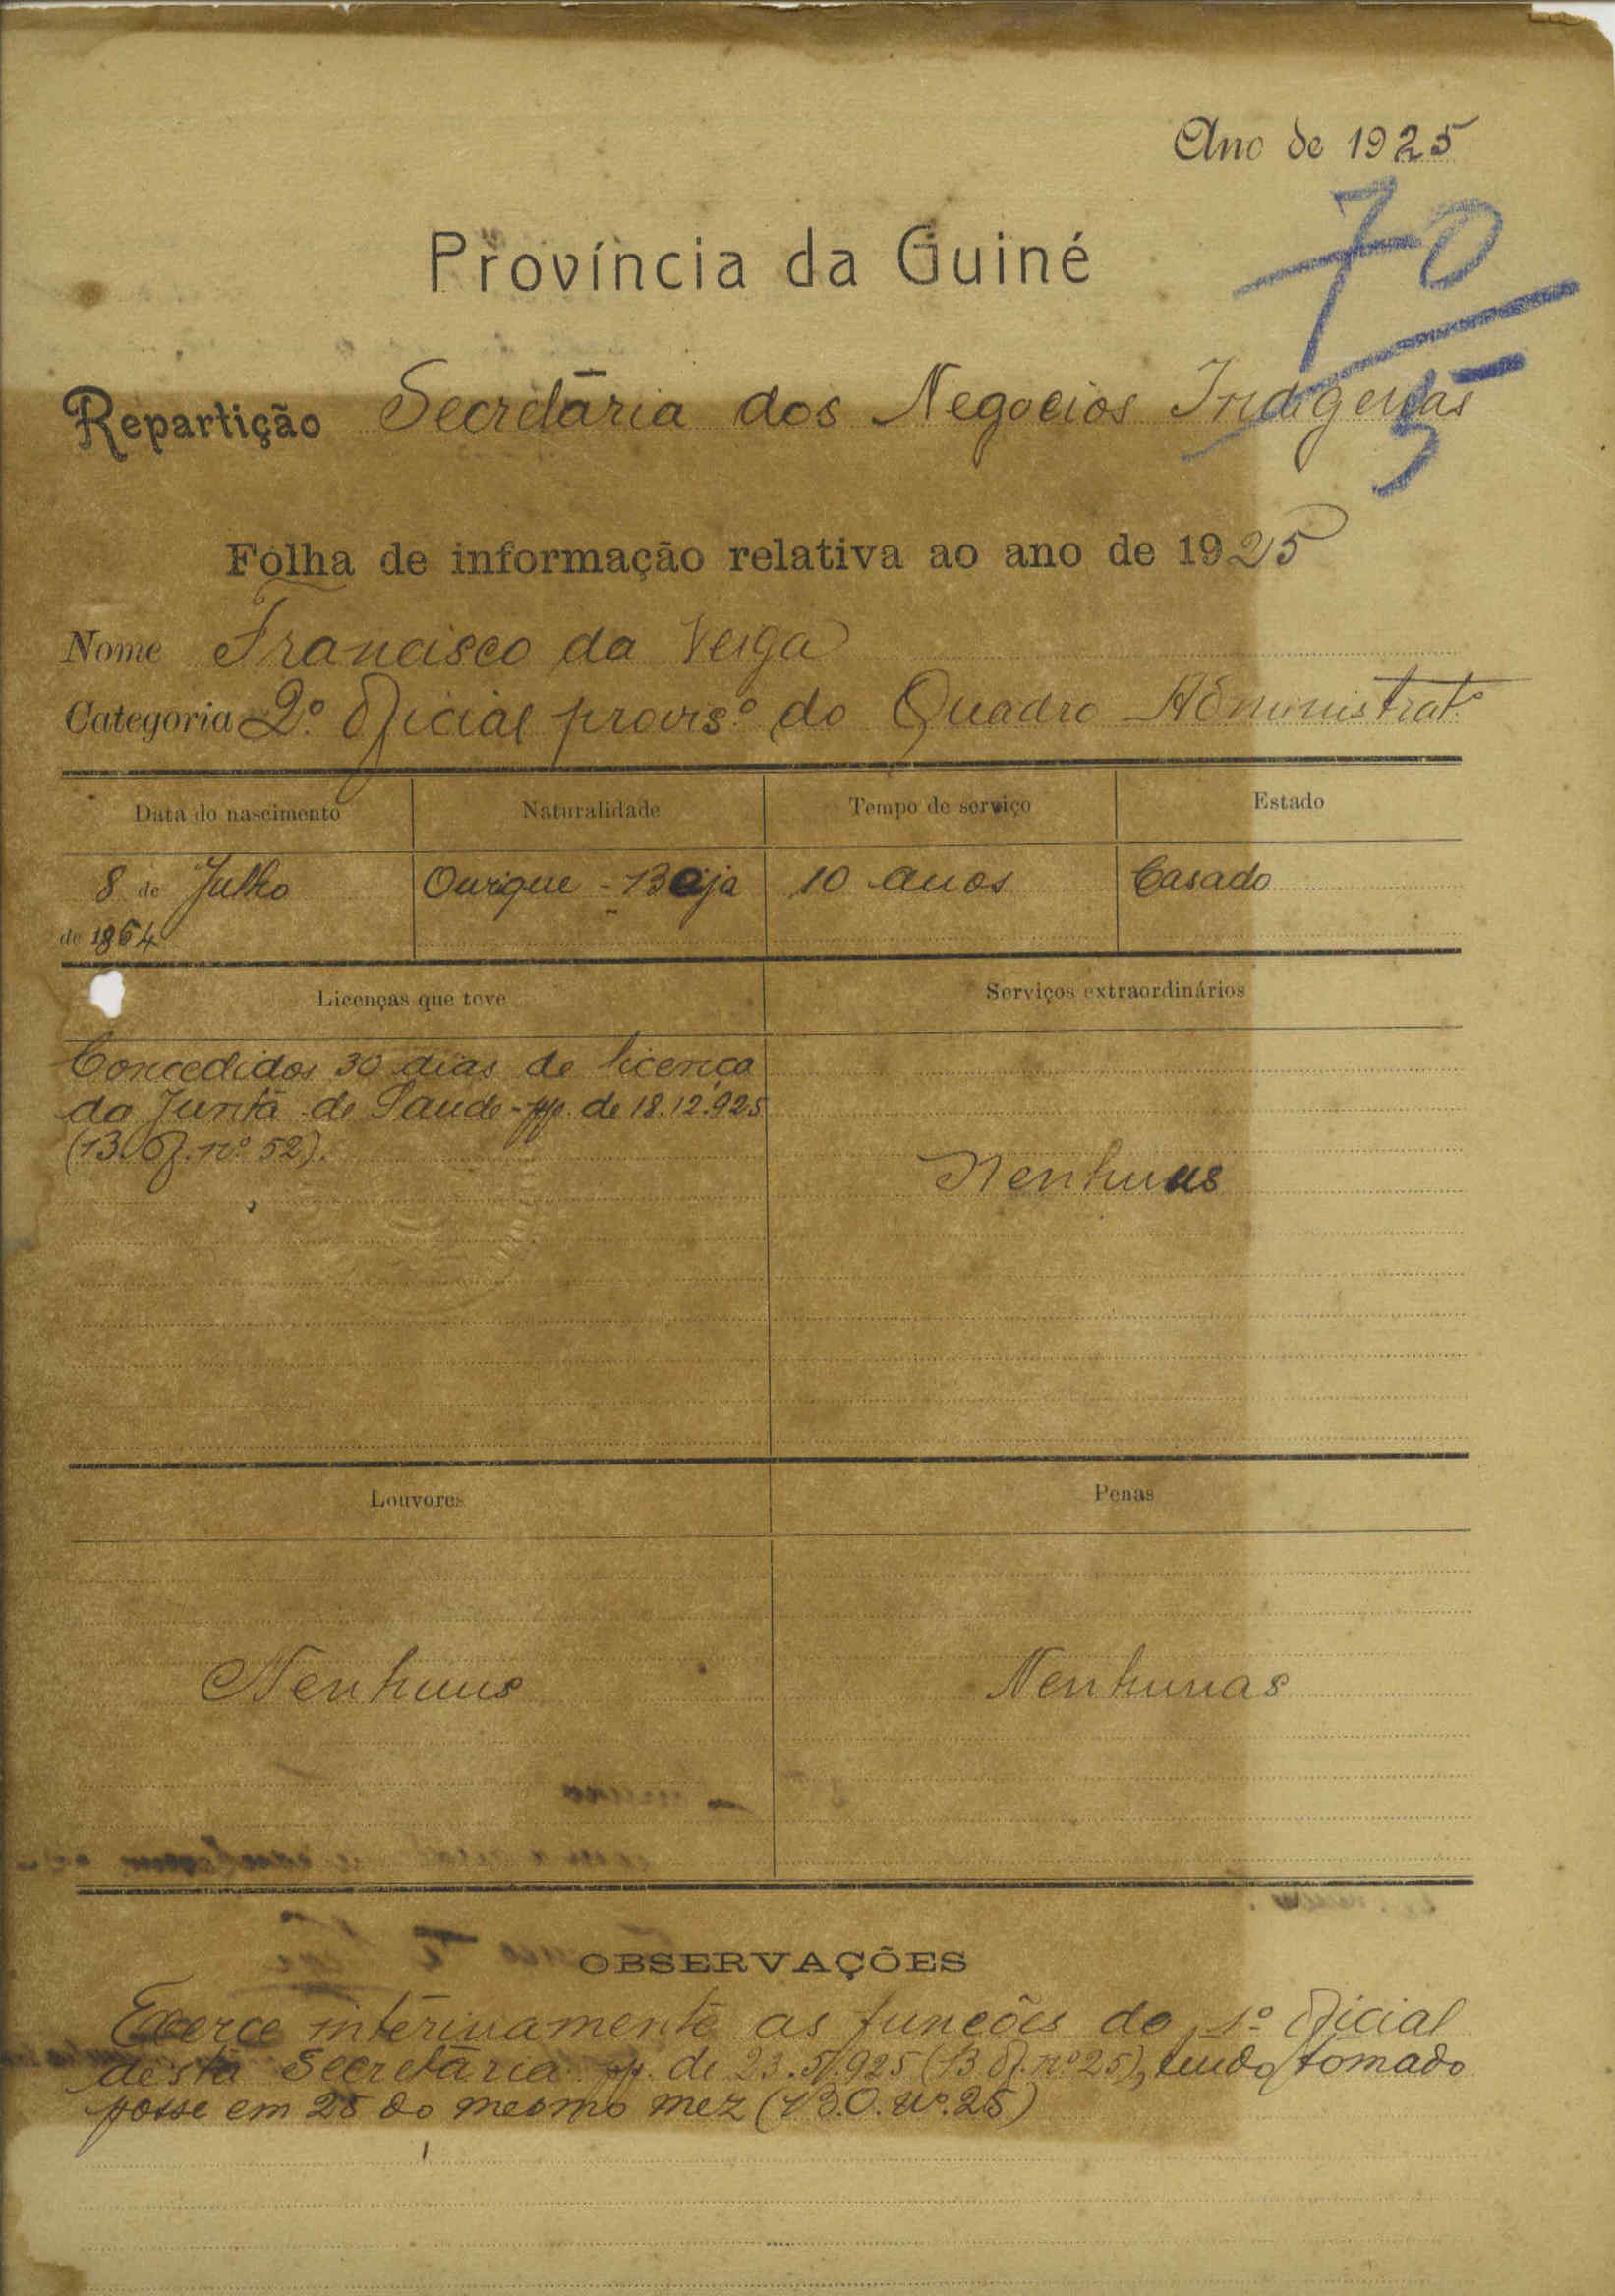 Ano de 1925
70
5
Província da Guiné
Repartição Secretaria dos Negocios Indigenas
Folha de informação relativa ao ano de 1925
Nome Francisco da Veiga
Categoria 2.º Oficial provis.º do Quadro Administrat.º
Data do nascimento Naturalidade Tempo de serviço Estado
8 de Julho Ourique - Beja 10 anos Casado
de 1864
Licenças que teve Serviços extraordinários
Concedidos 30 dias de licença
da Junta de Saude - pp. de 18.12.925
(B. Of. nº 52).
Nenhuns
Louvores Penas
Nenhuns Nenhumas
OBSERVAÇÕES
Exerce interinamente as funcões de 1º Oficial
desta Secretaria pp. de 23.5.925 (B. Of. nº 25), tendo tomado
posse em 28 do mesmo mez (B.O. nº. 25)